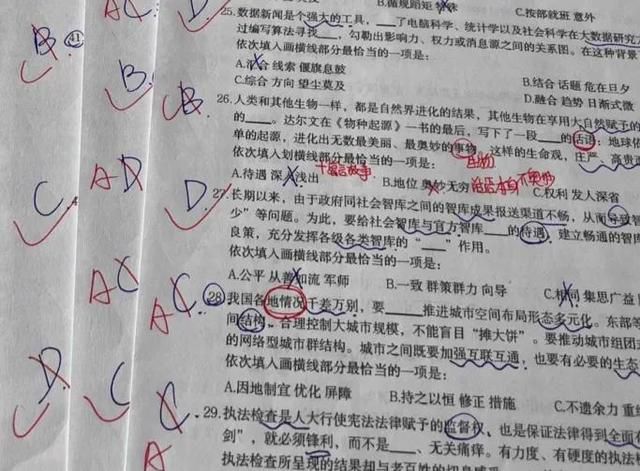 B.循规蹈矩 C.按部就班 意外
25.数据新闻是个强大的工具，____了电脑科学、统计学以及社会科学在大数据研究方
过编写算法寻找____，勾勒出影响力、权力或消息源之间的关系图。在这种背景
依次填入画横线部分最恰当的一项是：
A. 合 线索 偃旗息鼓 B.结合 话题 危在旦夕
C.综合 方向 望尘莫及 D.融合 趋势 日渐式微
26.人类和其他生物一样，都是自然界进化的结果，其他生物在享用大自然赋予的
的____。达尔文在《物种起源》一书的最后，写下了一段____的话语：地球依
单的起源，进化出无数最美丽、最奥妙的事物。这样的生命观，庄严、高贵
依次填入划横线部分最恰当的一项是：
A.待遇 深入浅出 B.地位 奥妙无穷 C.权利 发人深省
27.长期以来，由于政府同社会智库之间的智库成果报送渠道不畅，从而导致智
少”等问题。为此，要给社会智库与官方智库____的待遇，建立畅通的智库
良策，充分发挥各级各类智库的“____”作用。
依次填入画横线部分最恰当的一项是：
A.公平 从善如流 军师 B.一致 群策群力 向导 C.相同 集思广益
28.我国各地情况千差万别，要____推进城市空间布局形态多元化。东部等
间结构，合理控制大城市规模，不能盲目“摊大饼”。要推动城市组团式
的网络型城市群结构。城市之间既要加强互联互通，也要有必要的生态
依次填入画横线部分最恰当的一项是：
A.因地制宜 优化 屏障 B.持之以恒 修正 措施 C.不遗余力 重
29.执法检查是人大行使宪法法律赋予的监督权，也是保证法律得到全面
剑”，就必须锋利，而不是____、无关痛痒。有力度、有硬度的执法
执法检查所呈现的结果却与老百姓的切身感受
B
41
B
C
D
AC
D
B
AD
D
AC
C
AC
C
A
生物